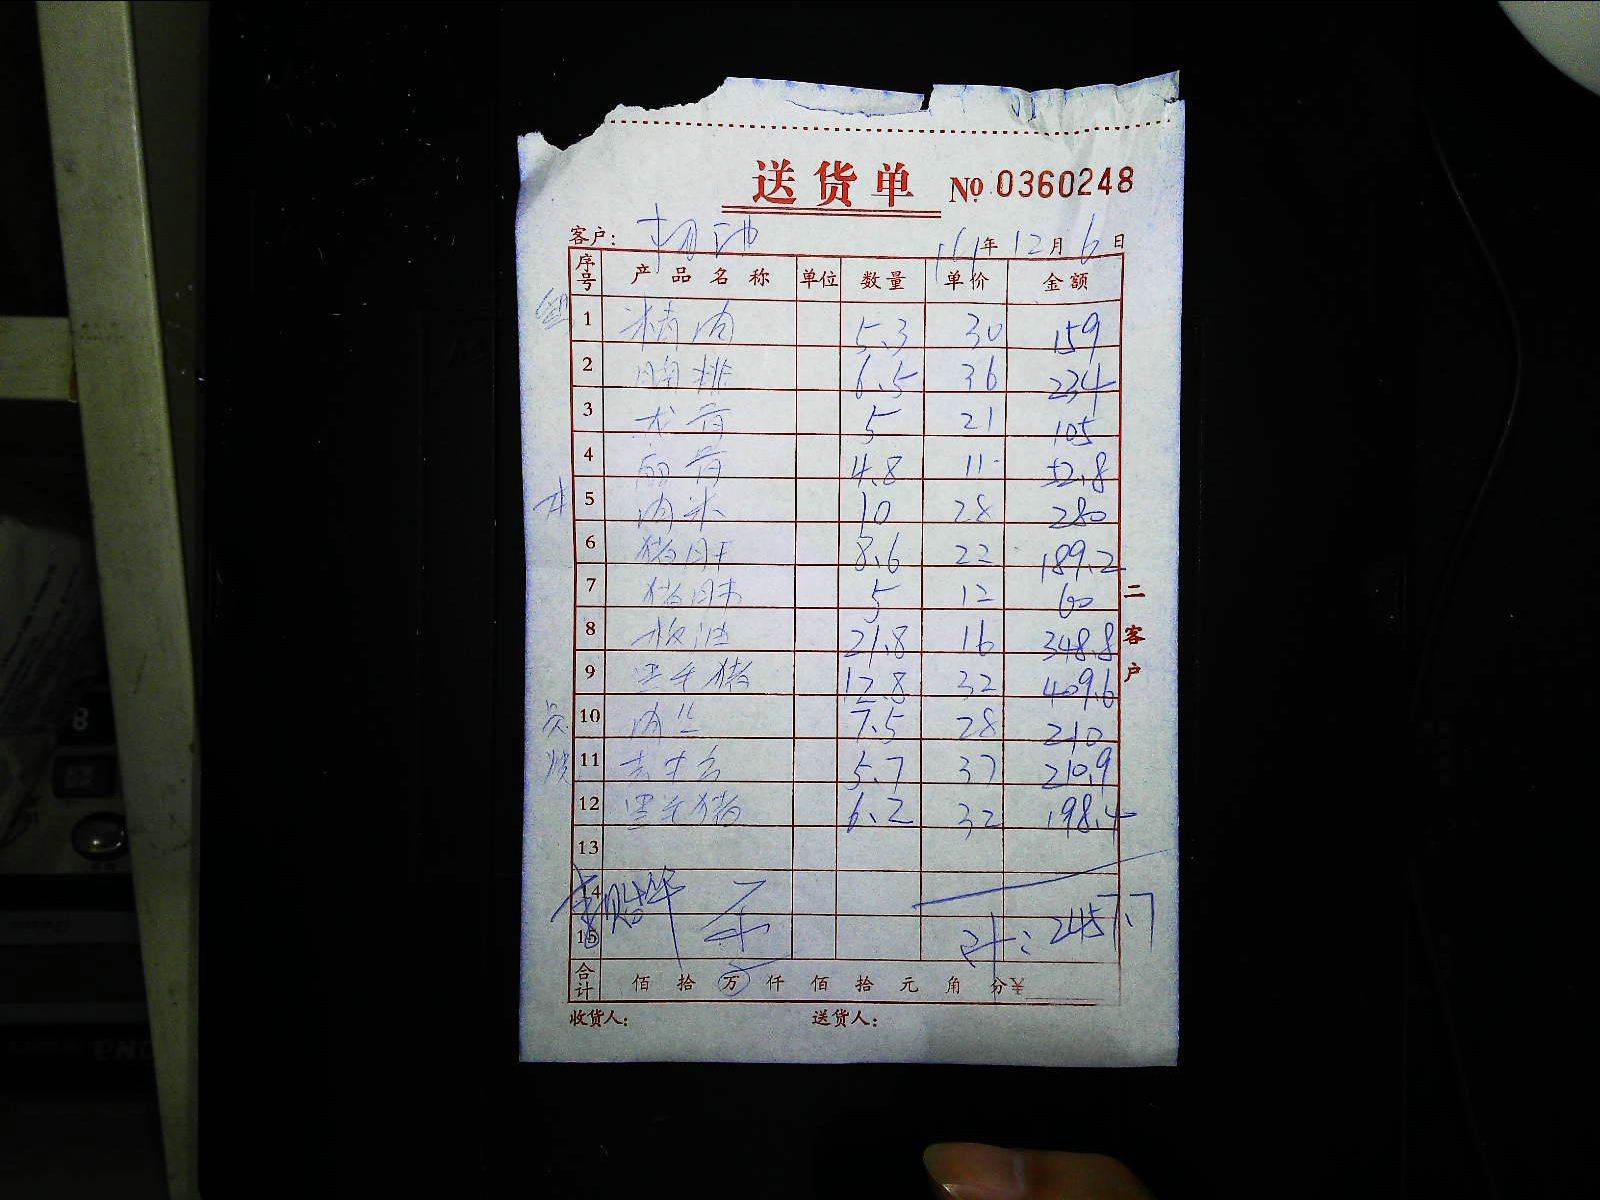 送货单 No 0360248
客户： 年 12 月 6 日
序号 产品名称 单位 数量 单价 金额
1 精肉 5.3 30 159
2 排 6.5 36 234
3 5 21 105
4 4.8 11 52.8
5 肉米 10 28 280
6 猪肝 8.6 22 189.2
7 猪 5 12 60
8 板油 21.8 16 348.8
9 黑毛猪 12.8 32 409.6
10 肉丝 7.5 28 210
11 5.7 37 210.9
12 黑毛猪 6.2 32 198.4
13
14
15 计： 2457.7
合计 佰 拾 万 仟 佰 拾 元 角 分 ¥
收货人： 送货人：
二客户